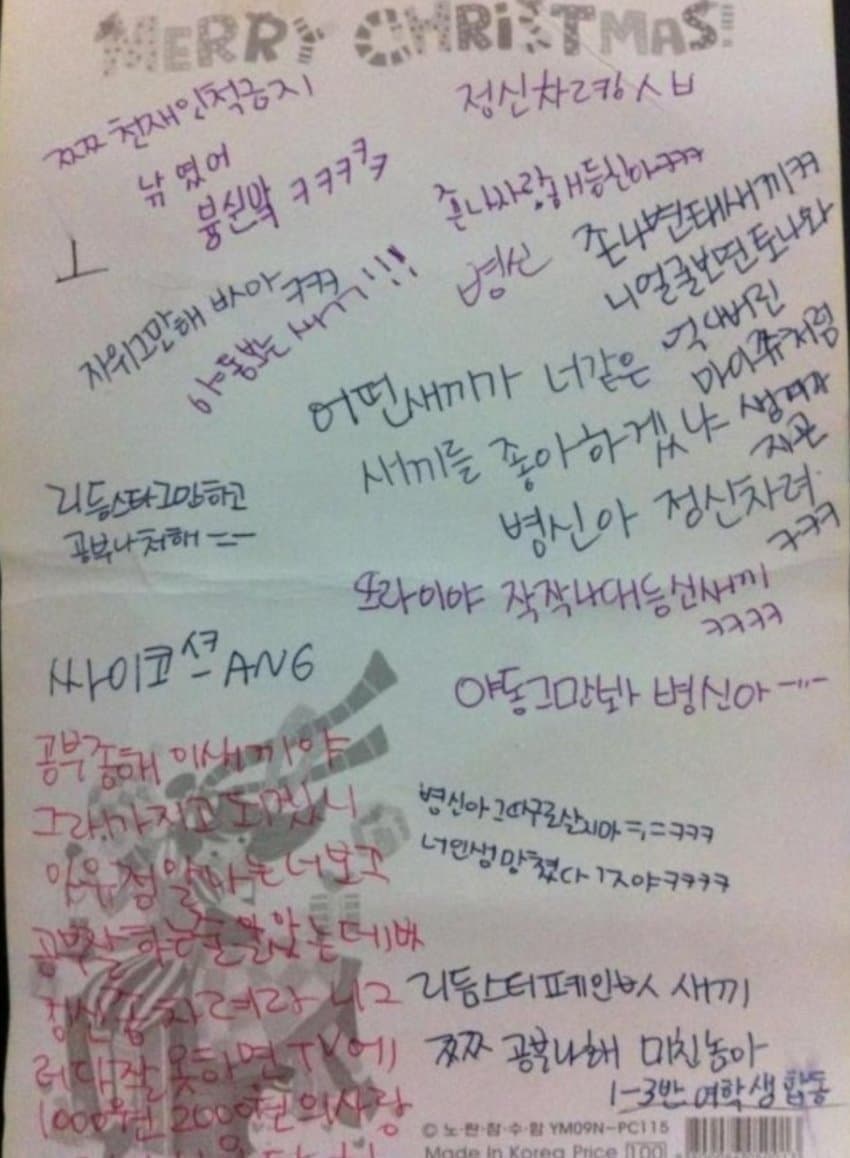 MERRY CHRISTMAS!
쯔쯔 천재인척금지
정신차려킹 ㅅㅂ
낚였어
븅신막 ㅋㅋㅋㅋㅋ
존나사랑해등신아ㅋㅋㅋ
병신
존나변태새끼ㅋㅋ
니얼굴보면토나와
ㅗ
자위그만해 ㅋㅋㅋ
야동보는 새끼!!!
어떤새끼가 너같은
마이쮸처럼
새끼를 좋아하겠냐
생겨가지곤
병신아 정신차려
ㅋㅋㅋ
리듬스타그만하고
공부나처해 ㅡㅡ
또라이야 작작나대등신새끼
ㅋㅋㅋㅋ
싸이코 ANG
야동그만봐 병신아ㅡㅡ
공부좀해 이새끼야
그래가지고 되겠니
너보고
공부잘하는줄알았는데
정신좀차려라 니그
러다잘못하면 TV에
1000원 2000원의사랑
병신아그따구로살지마 ㅋㅋㅋ
너인생망쳤다 ㅋㅋㅋㅋ
리듬스터페인 새끼
쯔쯔 공부나해 미친놈아
1-3반 여학생 합동
© 노·란·잠·수·함 YM09N-PC115
Made In Korea Price 100